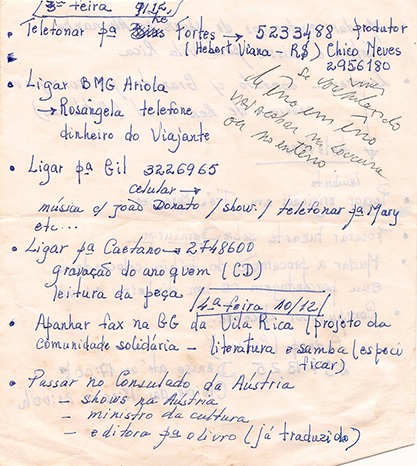 [3ª feira 9/12]
• Telefonar pª Dias Fortes → 5233488 produtor
(Hebert Viana - R$) Chico Neves
2956180
• Ligar BMG Ariola
→ Rosângela telefone
dinheiro do Viajante
Se você vive
pulando
de mão em
vai acabar na loucura
ou no
• Ligar pª Gil 3226965
celular →
música c/ João Donato / show: / telefonar pª Mary
etc...
• Ligar pª Caetano → 2748600
gravação do ano quem (CD)
leitura da peça
[4ª feira 10/12]
• Apanhar fax na GG da Vila Rica (projeto da
comunidade solidária - literatura e samba (especi
ficar)
• Passar no Consulado da Áustria
- shows na Áustria
- ministro da cultura
- editora pª o livro (já traduzido)